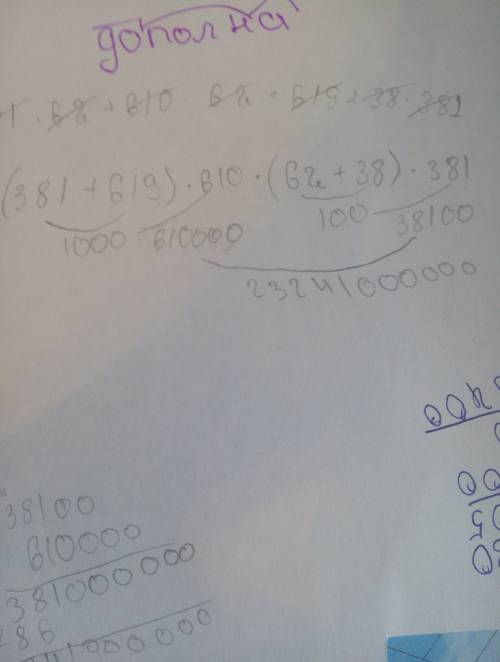 дополна
1 · 62 + 610 · 62 · 619 + 38 · 381
(381 + 619) · 610 · (62 + 38) · 381
1000 610000 100 38100
23241000000
38100
610000
381000000
286
41000000